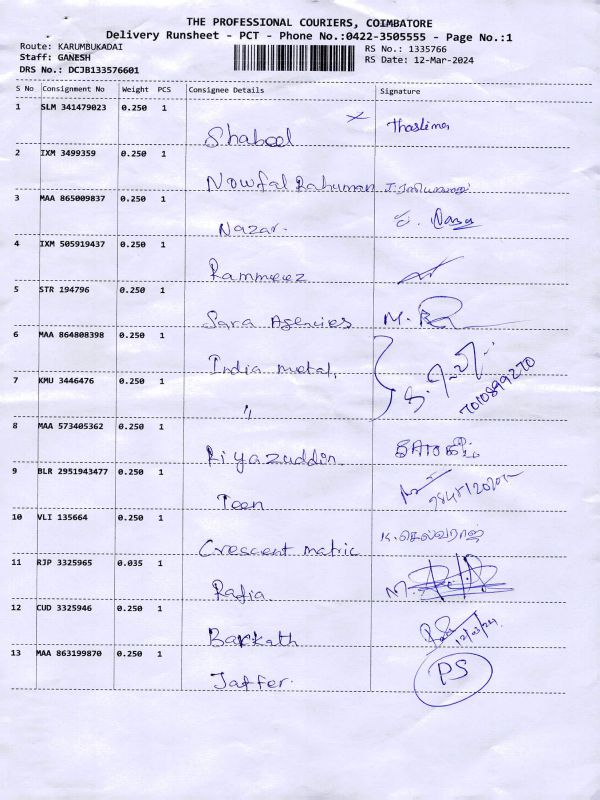 THE PROFESSIONAL COURIERS, COIMBATORE
Delivery Runsheet - PCT - Phone No.:0422-3505555 - Page No.:1
Route: KARUMBUKADAI
Staff: GANESH
DRS No.: DCJB133576601
RS No.: 1335766
RS Date: 12-Mar-2024
S No Consignment No Weight PCS Consignee Details Signature
1 SLM 341479023 0.250 1 Shabeel
2 IXM 3499359 0.250 1 Nowfal Rahuman
3 MAA 865009837 0.250 1 Nazar.
4 IXM 505919437 0.250 1 Rammeez
5 STR 194796 0.250 1 Sara Agencies M.
6 MAA 864808398 0.250 1 India metal,
7 KMU 3446476 0.250 1 " 7010899270
8 MAA 573405362 0.250 1 Riyazuddin
9 BLR 2951943477 0.250 1 Teen
10 VLI 135664 0.250 1 Crescent matric க.செல்வராஜ்
11 RJP 3325965 0.035 1 Rafia M.
12 CUD 3325946 0.250 1 Barkath 12/03/24
13 MAA 863199870 0.250 1 Jaffer. PS